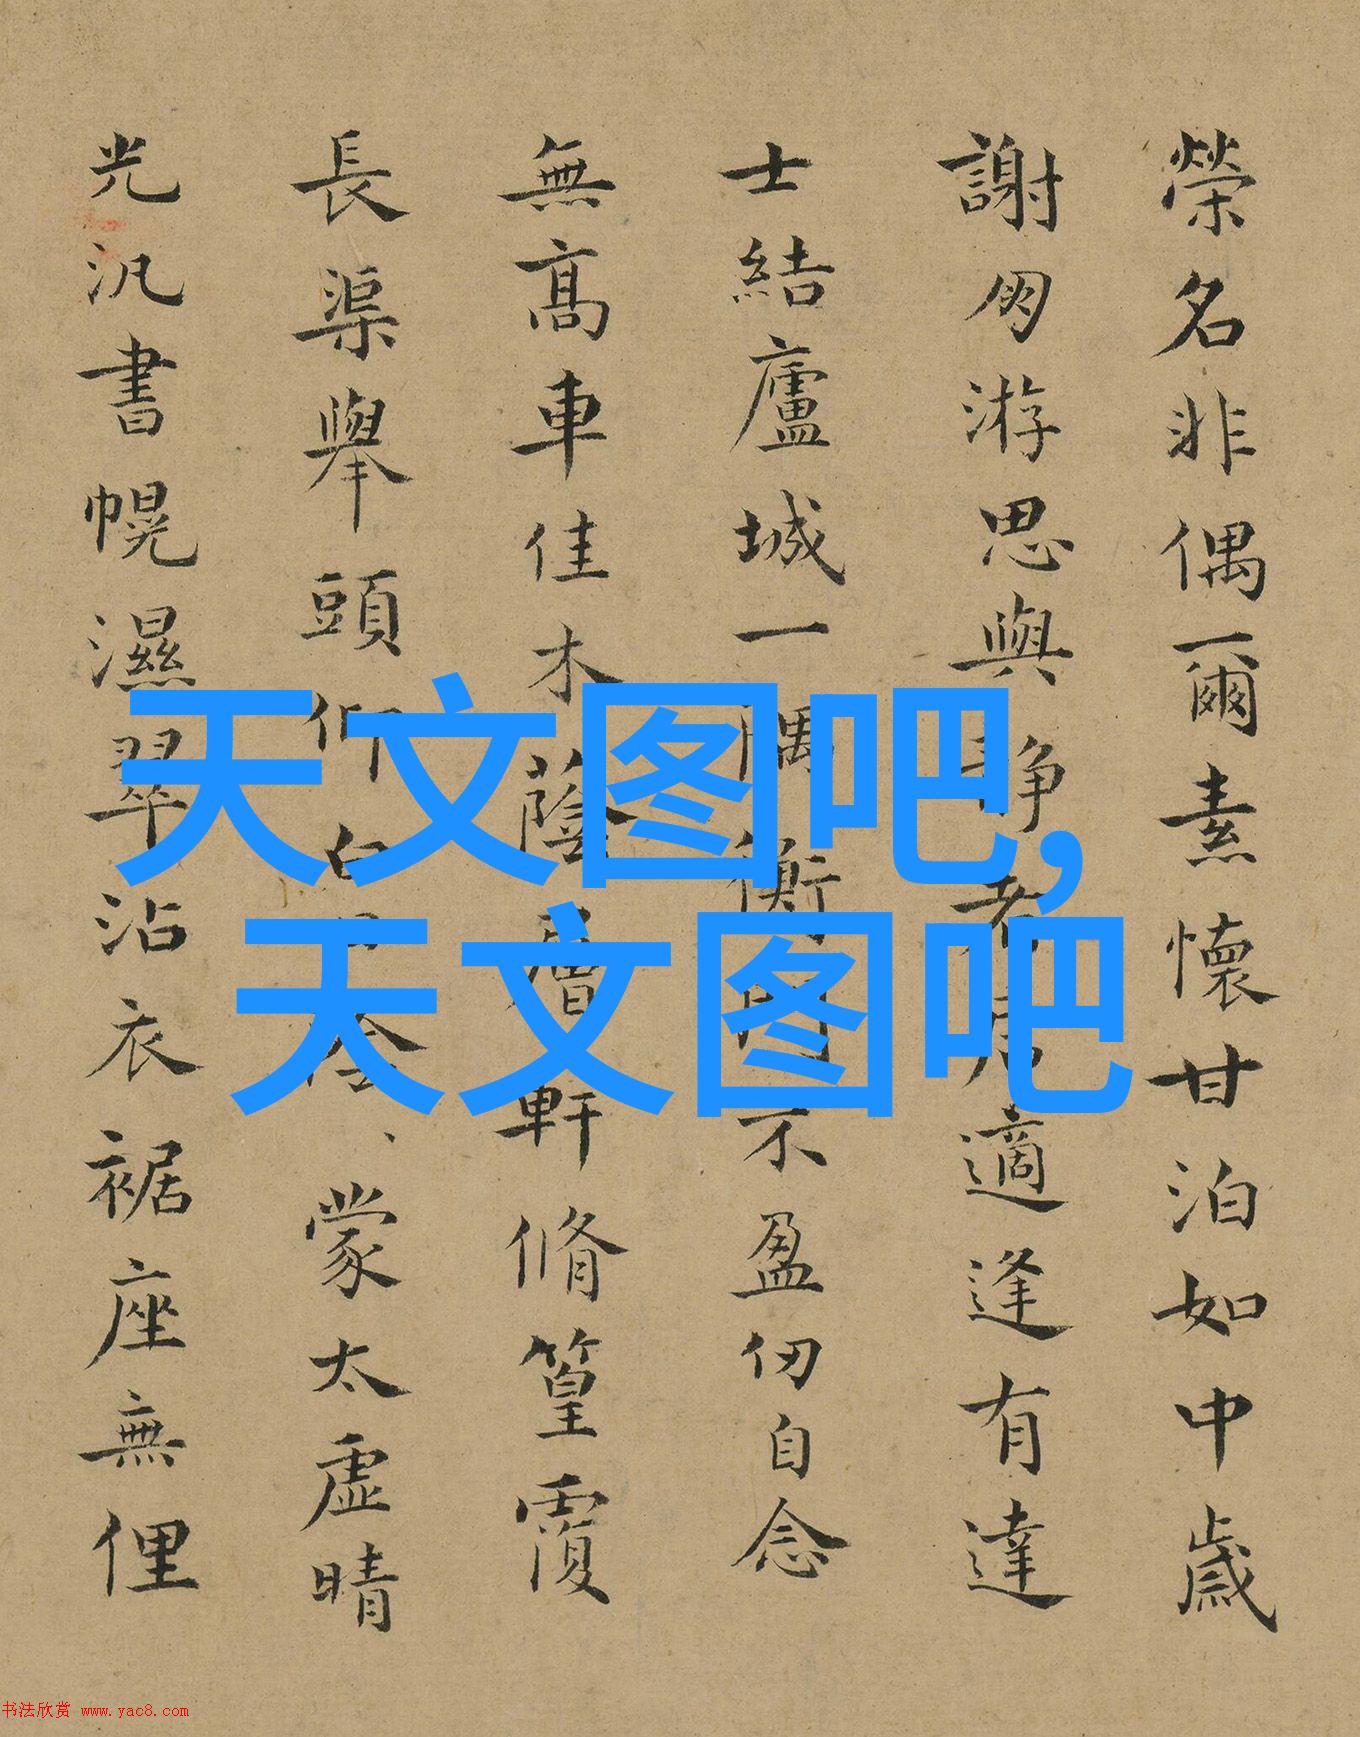 榮名非偶爾素懷甘泊如中歲
謝朋游思與静者居適逢有達
士結廬城一隅衡門不盈仞自念
無髙車佳木蔭層軒脩篁覆
長渠舉頭仰白蒙太虛晴
光汎書幌濕翠沾衣裾座無俚
天文图吧,
天文图吧
书法欣赏 www.yac8.com